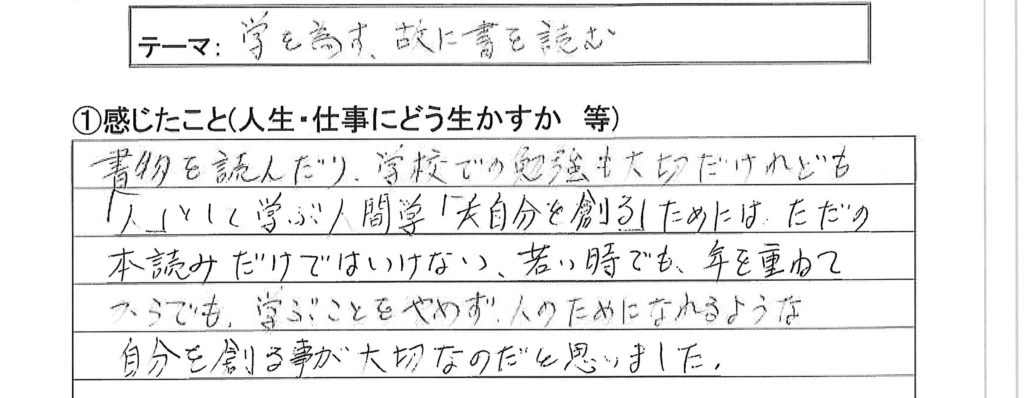 テーマ: 学を為す、故に書を読む
①感じたこと(人生・仕事にどう生かすか 等)
書物を読んだり、学校での勉強も大切だけれども
「人」として学ぶ人間学「夫自分を創る」ためには、ただの
本読みだけではいけない、若い時でも、年を重ねて
からでも、学ぶことをやめず、人のためになれるような
自分を創る事が大切なのだと思いました。